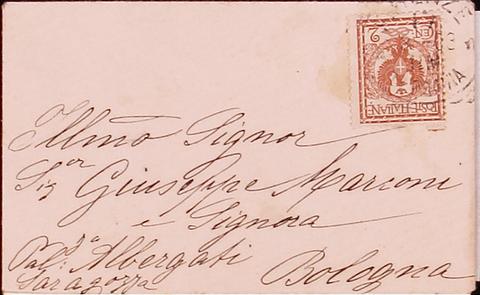 CEN. 2
POSTE ITALIANE
Illmo Signor
Sigor Giuseppe Marconi
e Signora
Palzo Albergati
Saragozza
Bologna